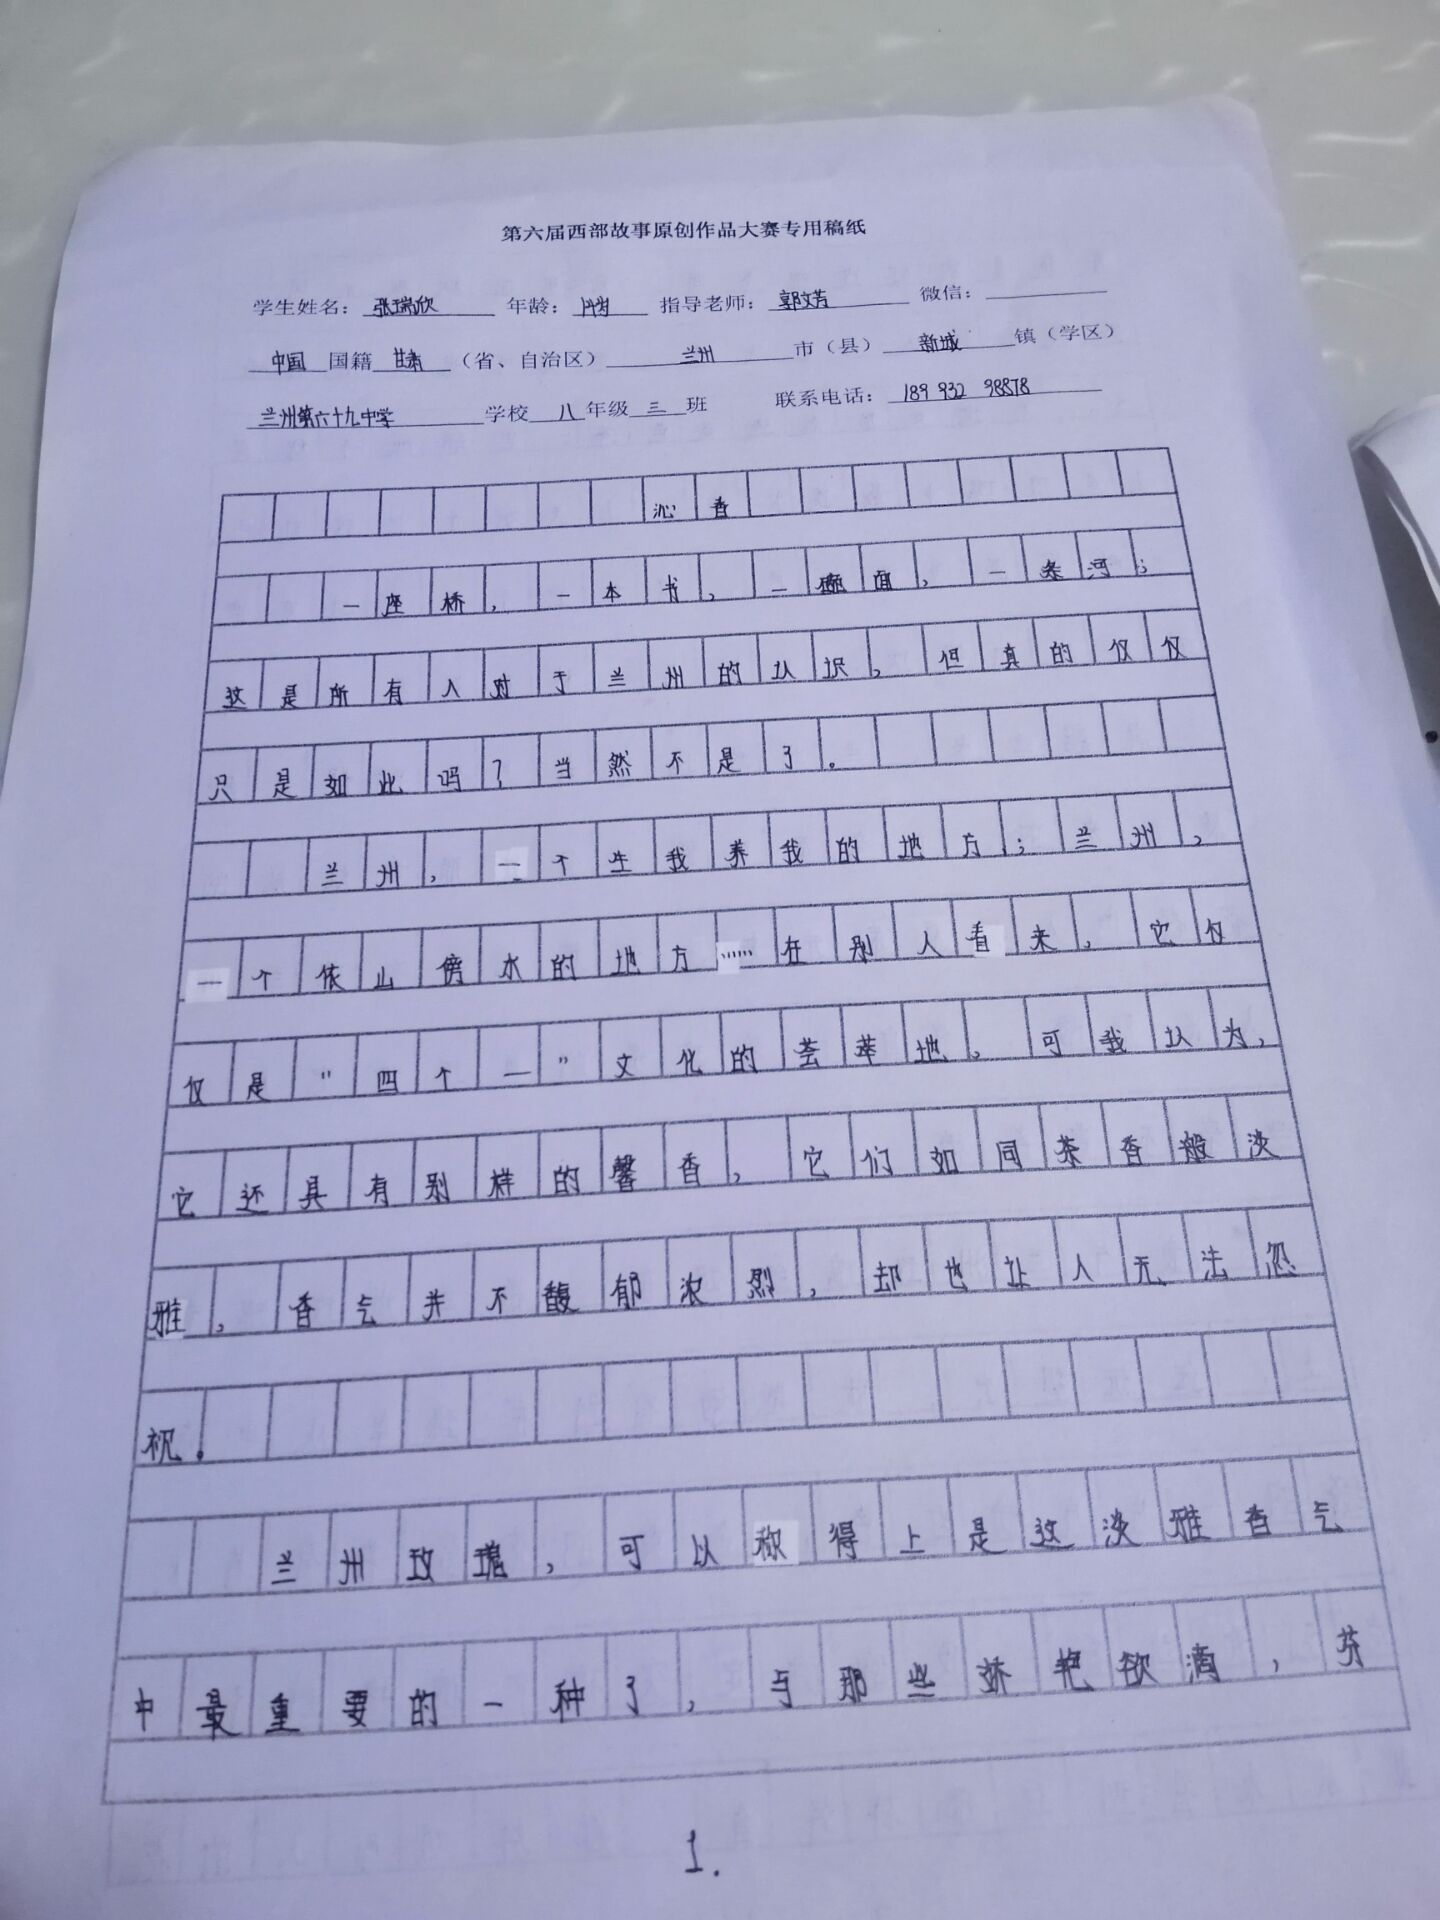 第六届西部故事原创作品大赛专用稿纸
学生姓名：张瑞欣 年龄： 指导老师：郭文芳 微信：
中国 国籍 甘肃（省、自治区）兰州 市（县）新城 镇（学区）
兰州第六十九中学 学校 八 年级 三 班 联系电话：189 932 98878
沁香
一座桥，一本书，一碗面，一条河；
这是所有人对于兰州的认识，但真的仅仅
只是如此吗？当然不是了。
兰州，一个生我养我的地方；兰州，
一个依山傍水的地方……在别人看来，它仅
仅是“四个一”文化的荟萃地。可我认为，
它还具有别样的馨香，它们如同茶香般淡
雅，香气并不馥郁浓烈，却也让人无法忽
视。
兰州玫瑰，可以称得上是这淡雅香气
中最重要的一种了，与那些娇艳欲滴，芬
1.